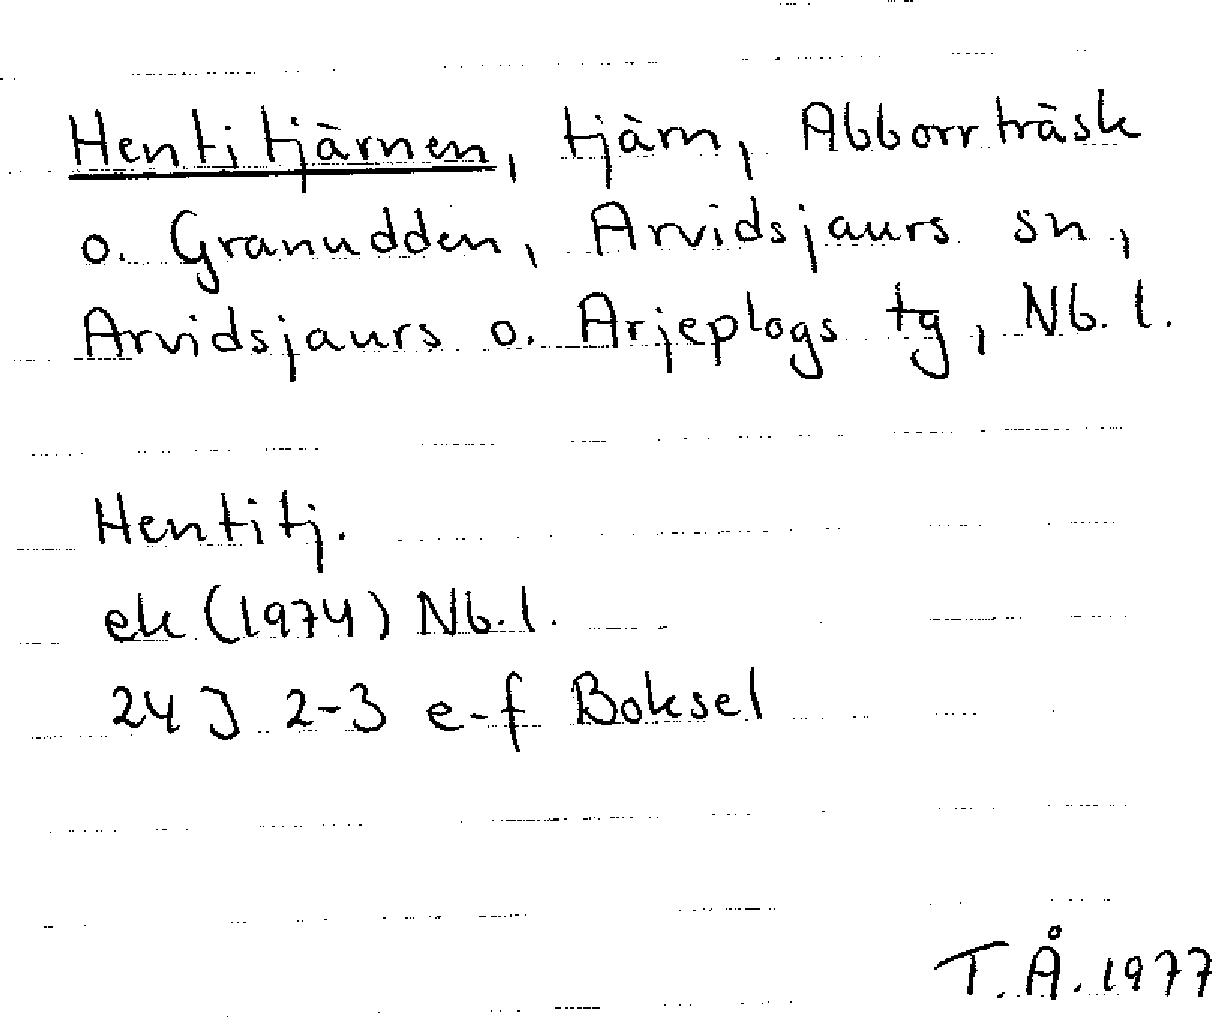 Hentitjärnen, tjärn, Abborrträsk
o. Granudden, Arvidsjaurs sn,
Arvidsjaurs o. Arjeplogs tg, Nb. l.
Hentitj.
ek (1974) Nb. l.
24 J 2-3 e-f Boksel
T.Å. 1977